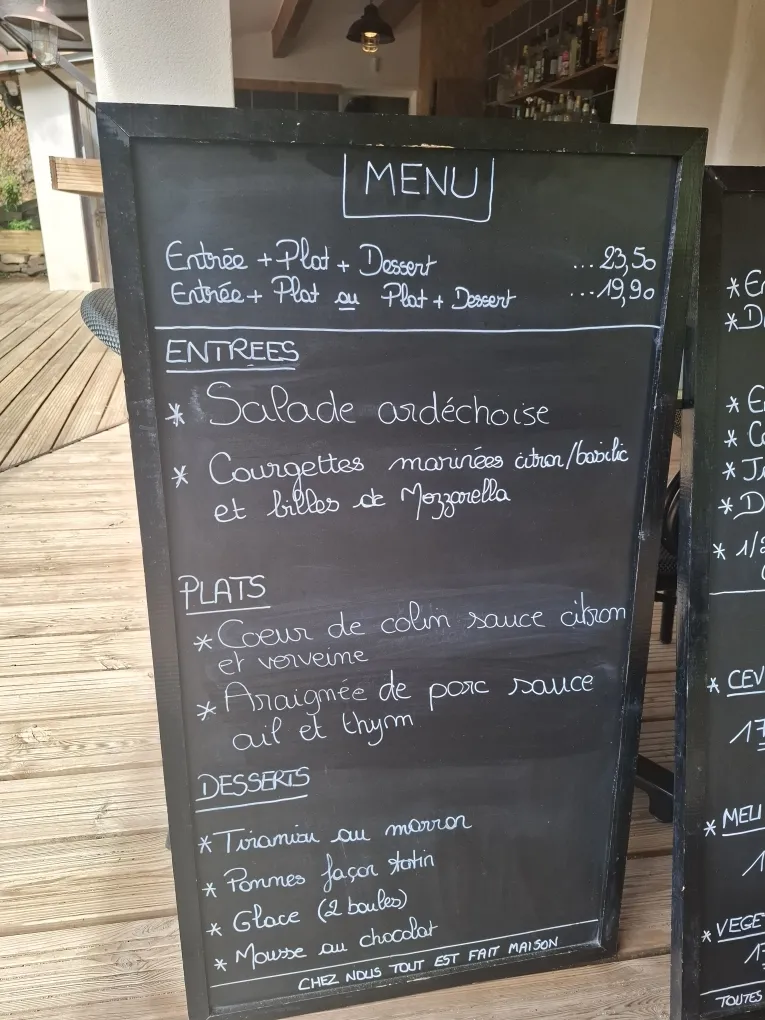 MENU
Entrée + Plat + Dessert ... 23,50
Entrée + Plat ou Plat + Dessert ... 19,90
ENTREES
* Salade ardéchoise
* Courgettes marinées citron/basilic
et billes de Mozzarella
PLATS
* Coeur de colin sauce citron
et verveine
* Araignée de porc sauce
ail et thym
DESSERTS
* Tiramisu au marron
* Pommes façon tatin
* Glace (2 boules)
* Mousse au chocolat
CHEZ NOUS TOUT EST FAIT MAISON
* CEV
17
* MELI
* VEGE
TOUTES